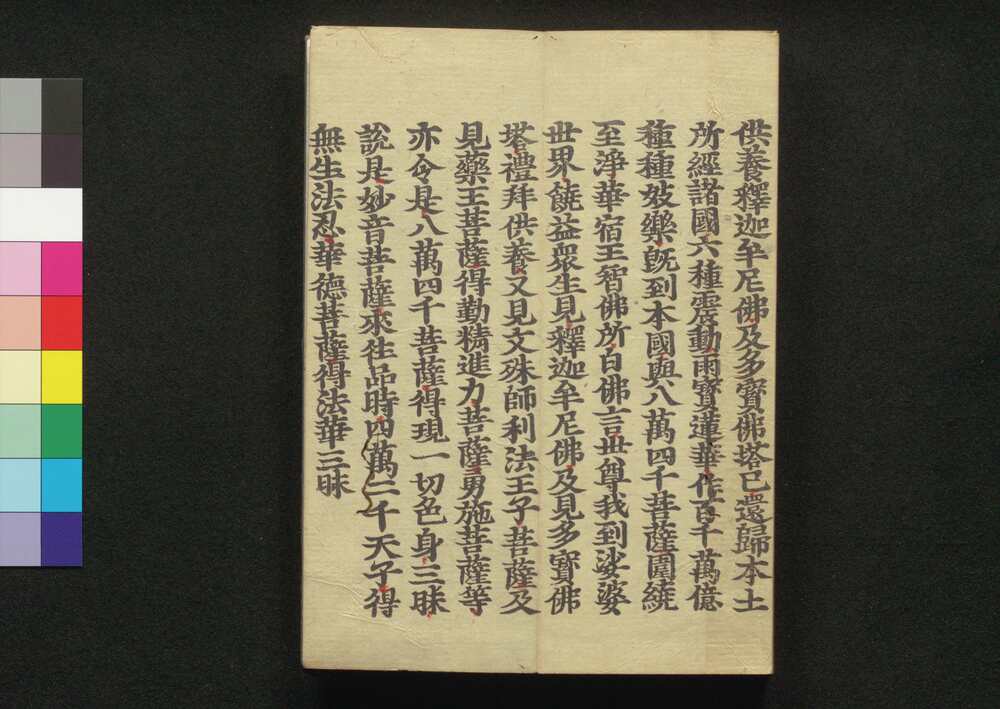 供養釋迦牟尼佛及多寶佛塔已還歸本土
所經諸國六種震動雨寶蓮華作百千萬億
種種妓樂既到本國與八萬四千菩薩圍繞
至淨華宿王智佛所白佛言世尊我到娑婆
世界饒益衆生見釋迦牟尼佛及見多寶佛
塔禮拜供養又見文殊師利法王子菩薩及
見藥王菩薩得勤精進力菩薩勇施菩薩等
亦令是八萬四千菩薩得現一切色身三昧
說是妙音菩薩來往品時四萬二千天子得
無生法忍華德菩薩得法華三昧